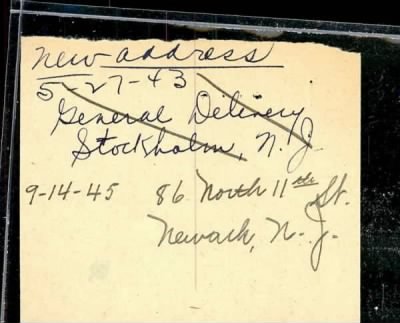 new address
5-27-43
General Delivery
Stockholm, N.J.
9-14-45 86 North 11th St.
Newark, N.J.